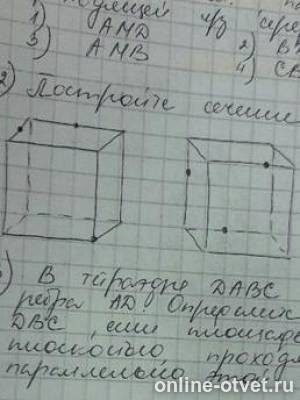 1) AMD 2) В
3) АМВ 4) СВ
2) Постройте сечение
В тетраэдре DABC
ребра AD. Определите
DBC, если площадь
плоскостью, проходя
параллельно
online-otvet.ru